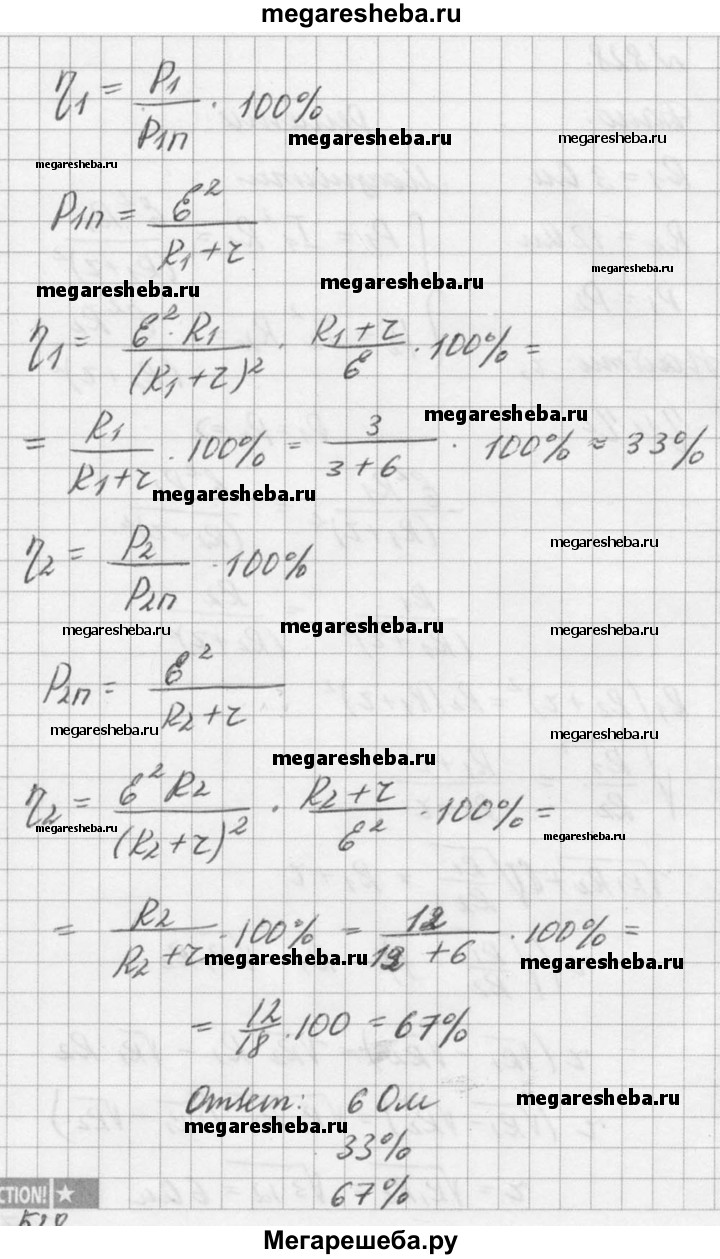 megaresheba.ru
η₁ = P₁/P₁п · 100%
megaresheba.ru megaresheba.ru
megaresheba.ru
P₁п = Ɛ²/(R₁+r)
megaresheba.ru
megaresheba.ru megaresheba.ru
η₁ = Ɛ²·R₁/(R₁+r)² · (R₁+r)/Ɛ · 100% =
megaresheba.ru
= R₁/(R₁+r) · 100% = 3/(3+6) · 100% ≈ 33%
megaresheba.ru
η₂ = P₂/P₂п · 100%
megaresheba.ru
megaresheba.ru megaresheba.ru megaresheba.ru
P₂п = Ɛ²/(R₂+r)
megaresheba.ru megaresheba.ru
megaresheba.ru
η₂ = Ɛ²R₂/(R₂+r)² · (R₂+r)/Ɛ² · 100% =
megaresheba.ru megaresheba.ru
= R₂/(R₂+r) · 100% = 12/(12+6) · 100% =
megaresheba.ru megaresheba.ru
= 12/18 · 100 = 67%
Ответ: 6 Ом
megaresheba.ru
megaresheba.ru
33%
67%
CTION!
Мегарешеба.ру